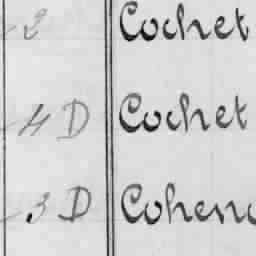 2 Cochet
4 D Cochet
3 D Cohen